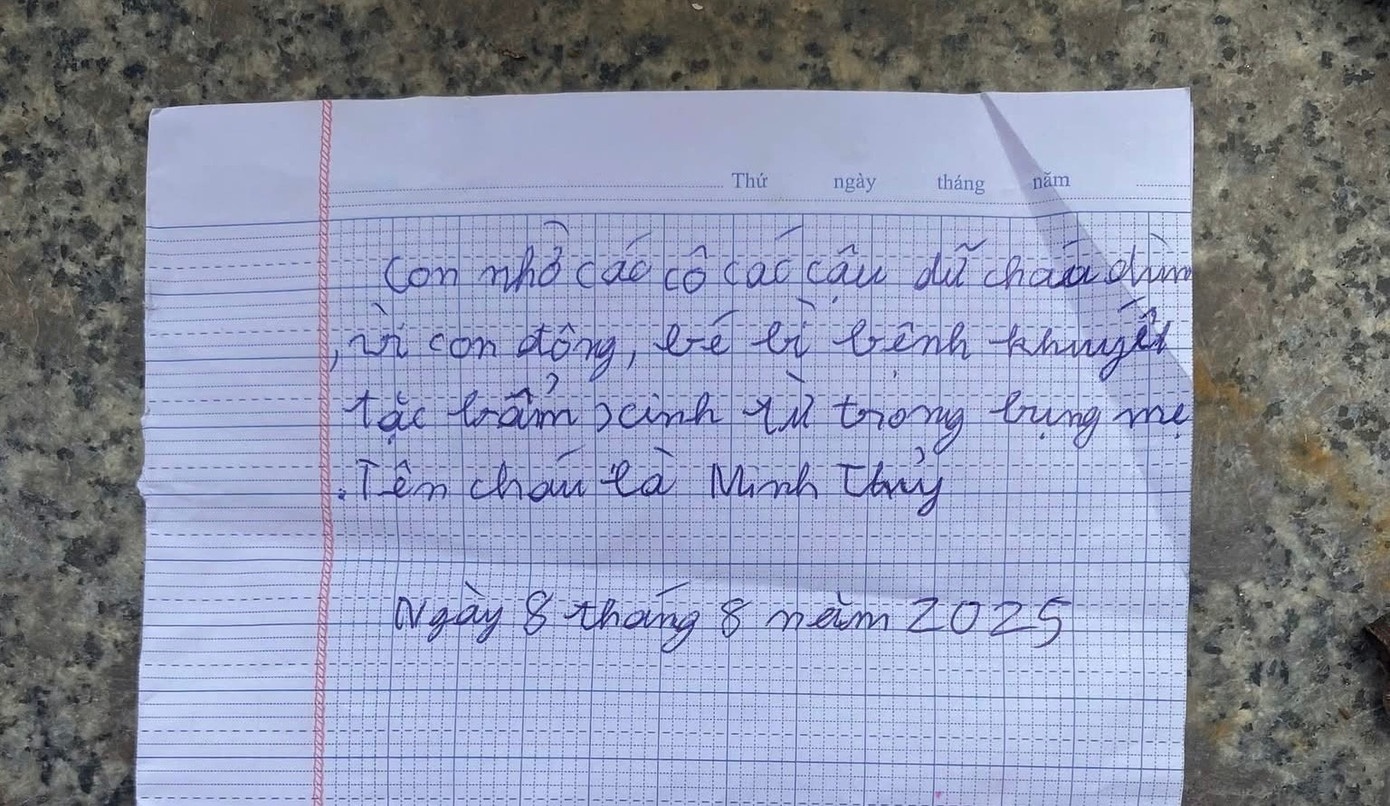 Thứ ngày tháng năm
Con nhờ các cô các cậu dữ cháu dùm
, vì con đông, bé bị bênh khuyết
tặc bẩm xinh từ trong bụng mẹ
. Tên cháu là Minh Thủy
Ngày 8 tháng 8 năm 2025